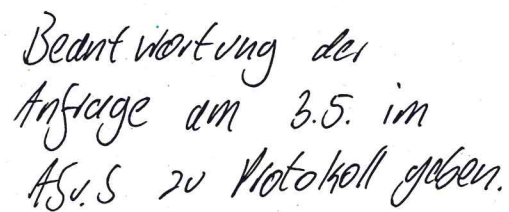 Beantwortung der
Anfrage am 3.5. im
ASv.S zu Protokoll geben.